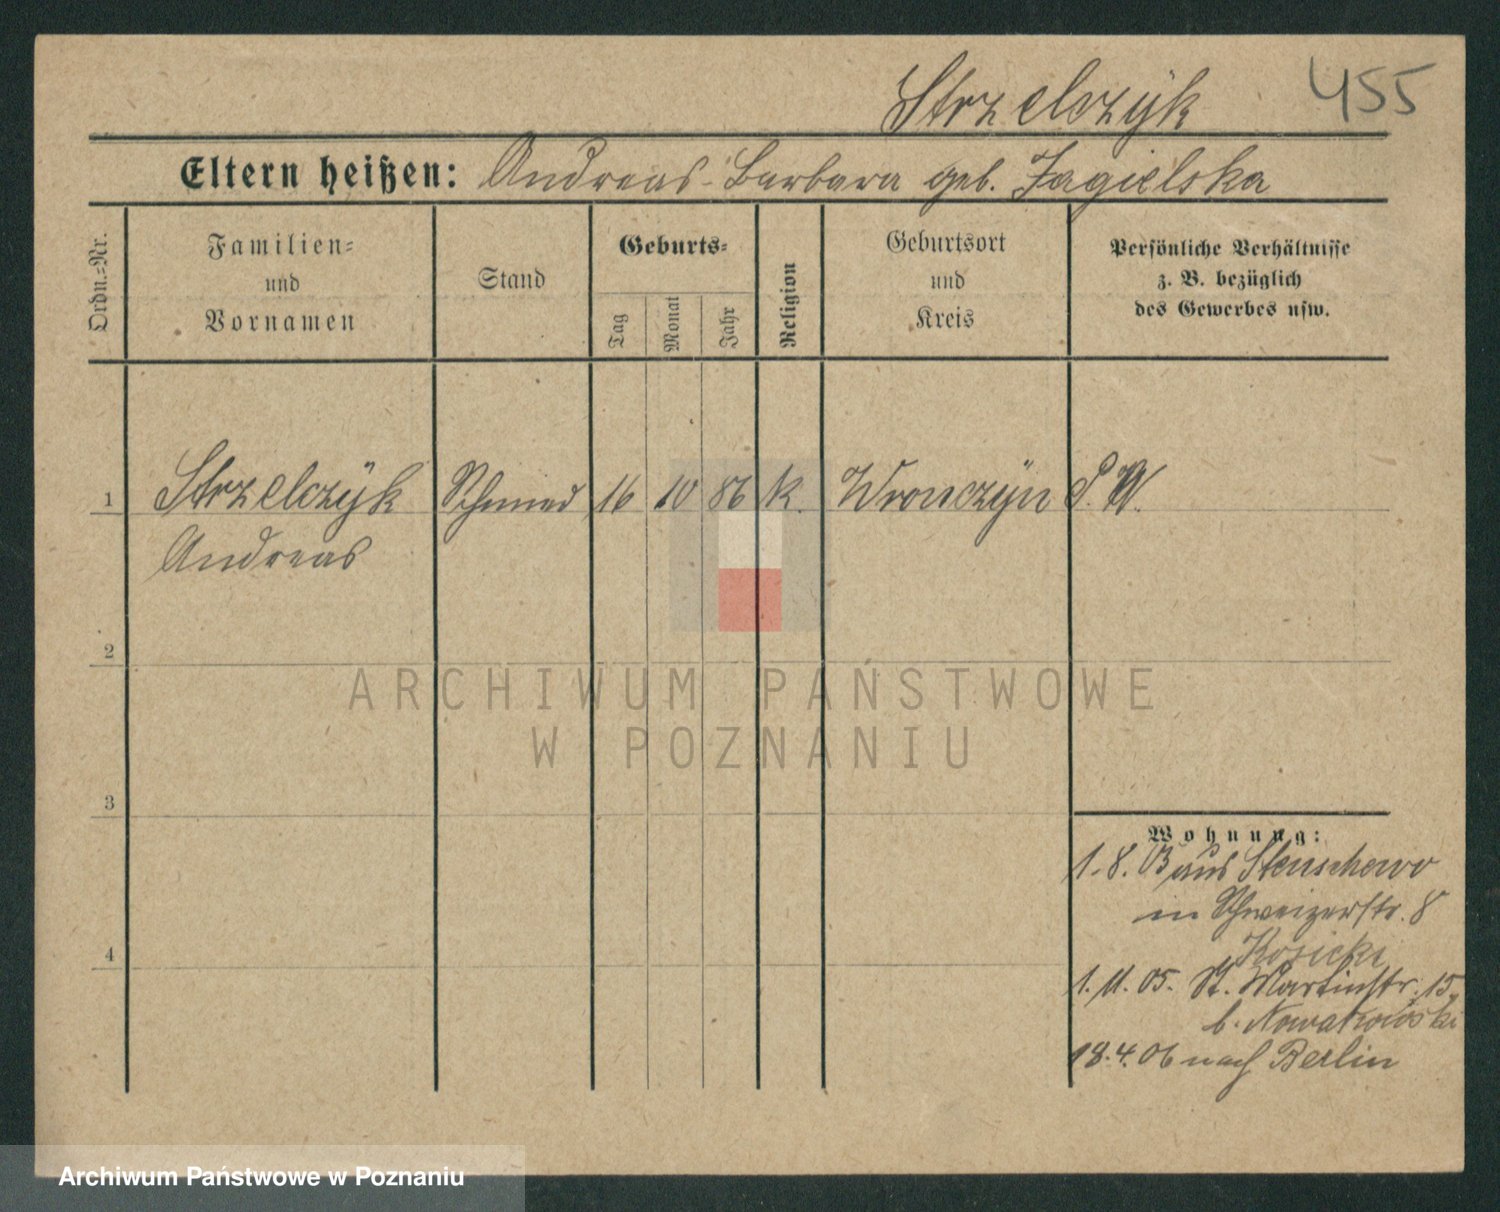 Strzelczÿk 455
Eltern heißen: Andreas - Barbara geb. Jagielska
Ordn.=Nr.
Familien=
und
Vornamen
Stand
Geburts=
Tag
Monat
Jahr
Religion
Geburtsort
und
Kreis
Persönliche Verhältnisse
z. B. bezüglich
des Gewerbes usw.
1 Strzelczÿk Schmied 16 10 86 k. Wronczÿn P. W.
Andreas
2
3
4
Wohnung:
1. 8. 03 aus Stenschewo
in Schweizerstr. 8
Kosicki
1. 11. 05. St. Martinstr. 15.
b. Nowakowski
18. 4. 06 nach Berlin
ARCHIWUM PAŃSTWOWE
W POZNANIU
Archiwum Państwowe w Poznaniu